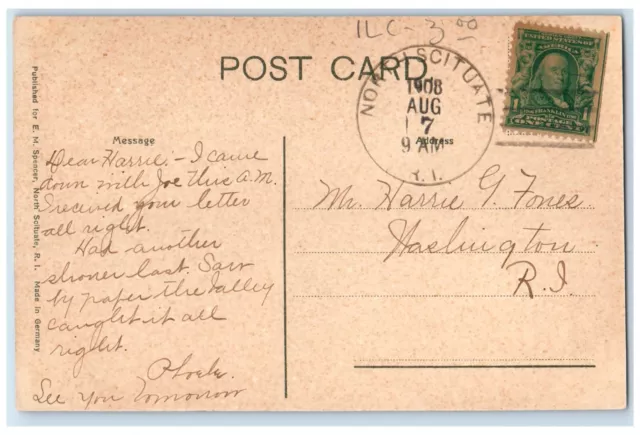 ILC-3 00
POST CARD
NORTH SCITUATE
1908
AUG
17
9 AM
R.I.
UNITED STATES OF AMERICA
1 1
POSTAGE
ONE CENT
Message
Address
Dear Harrie, - I came
down with Joe this A.M.
I received your letter
all right.
Had another
shower last. Saw
by paper the valley
caught it all
right.
Phoebe.
See you tomorrow
Mr. Harrie G. Fones.
Washington
R.I.
Published for E. M. Spencer, North Scituate, R. I. Made in Germany